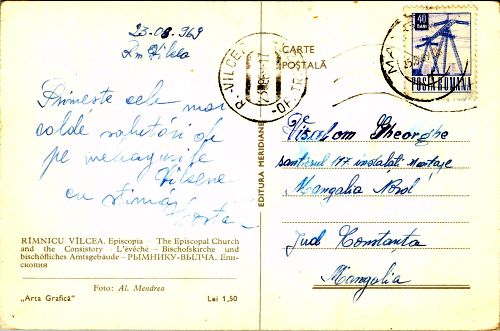 23.08.969
Rm Vîlcea
Primește cele mai
calde salutări de
pe meleagurile
Vîlcene
cu stimă
Costa
RÎMNICU VÎLCEA. Episcopia — The Episcopal Church
and the Consistory — L'évêché — Bischofskirche und
bischöfliches Amtsgebäude — РЫМНИКУ-ВЫЛЧА. Епи-
скопия
Foto: Al. Mendrea
„Arta Grafică”
Lei 1,50
EDITURA MERIDIANE
CARTE
POȘTALĂ
R. VILCEA
OF. TR
40
BANI
POSTA ROMANA
MA
Visalom Gheorghe
șantierul 117 instalații montaje
Mangalia Nord
Jud Constanța
Mangalia